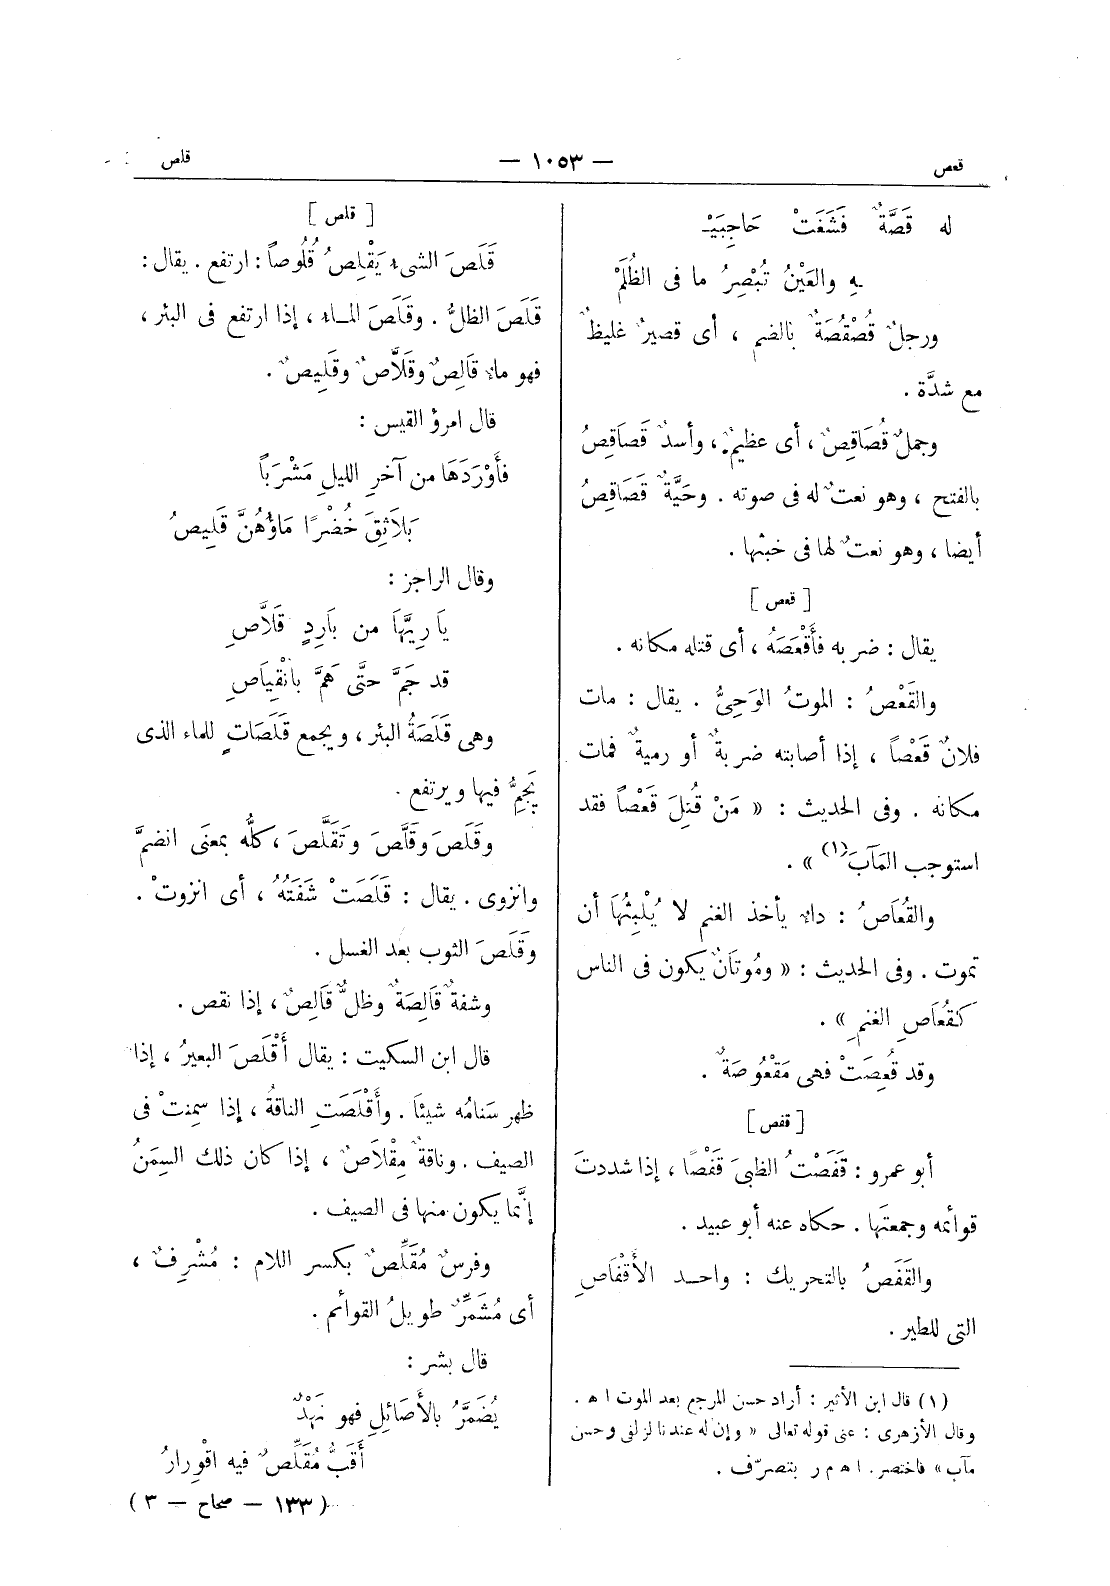 قعص — ١٠٥٣ — قلص
له قَصَّةٌ فَشَغَتْ حَاجِبَيْـ
ـهِ والعَيْنُ تُبْصِرُ ما فى الظُلَمْ
ورجلٌ قُصْقُصَةٌ بالضم ، أى قصيرٌ غليظٌ
مع شدَّة .
وجملٌ قُصَاقِصٌ ، أى عظيمٌ، وأسدٌ قَصَاقِصُ
بالفتح ، وهو نعتٌ له فى صوته . وحَيَّةٌ قَصَاقِصُ
أيضا ، وهو نعتٌ لها فى خبثها .
[ قعص ]
يقال : ضربه فأَقْعَصَهُ ، أى قتله مكانه .
والقَعْصُ : الموتُ الوَحِىُّ . يقال : مات
فلانٌ قَعْصاً ، إذا أصابته ضربةٌ أو رميةٌ فمات
مكانه . وفى الحديث : « مَنْ قُتِلَ قَعْصاً فقد
استوجب المَآبَ (١) » .
والقُعَاصُ : داء يأخذ الغنم لا يُلْبِثُهَا أن
تموت . وفى الحديث : « ومُوتَانٌ يكون فى الناس
كقُعَاصِ الغنمِ » .
وقد قُعِصَتْ فهى مَقْعُوصَةٌ .
[ قفص ]
أبو عمرو : قَفَصْتُ الظبىَ قَفْصًا ، إذا شددتَ
قوائمه وجمعتَها . حكاه عنه أبو عبيد .
والقَفَصُ بالتحريك : واحد الأَقْفَاصِ
التى للطير .
(١) قال ابن الأثير : أراد حسن المرجع بعد الموت اه .
وقال الأزهرى : عنى قوله تعالى « وإن له عندنا لزلفى وحسن
مآب » فاختصر. اه م ر بتصرّف .
[ قلص ]
قَلَصَ الشىء يَقْلِصُ قُلُوصاً : ارتفع . يقال :
قَلَصَ الظلُّ . وقَلَصَ المـاء ، إذا ارتفع فى البئر ،
فهو ماء قَالِصٌ وقَلَّاصٌ وقَلِيصٌ .
قال امرؤ القيس :
فأَوْرَدَهَا من آخرِ الليلِ مَشْرَباً
بَلَاثِقَ خُضْرًا مَاؤُهُنَّ قَلِيصُ
وقال الراجز :
يَا رِيَّهَا من بَارِدٍ قَلَّاصِ
قد جَمَّ حتَّى هَمَّ بانْقِيَاصِ
وهى قَلَصَةُ البئر ، ويجمع قَلَصَاتٍ للماء الذى
يَجِمُّ فيها ويرتفع .
وقَلَصَ وقَلَّصَ وتَقَلَّصَ ، كلُّه بمعنَى انضمَّ
وانزوى . يقال : قَلَصَتْ شَفَتُهُ ، أى انزوتْ .
وقَلَصَ الثوب بعد الغسل .
وشفةٌ قَالِصَةٌ وظلٌّ قَالِصٌ ، إذا نقص .
قال ابن السكيت : يقال أَقْلَصَ البعيرُ ، إذا
ظهر سَنامُه شيئا . وأَقْلَصَتِ الناقةُ ، إذا سمِنتْ فى
الصيف . وناقةٌ مِقْلَاصٌ ، إذا كان ذلك السِمَنُ
إنَّما يكون منها فى الصيف .
وفرسٌ مُقَلِّصٌ بكسر اللام : مُشْرِفٌ ،
أى مُشَمِّرٌ طويلُ القوائم .
قال بشر :
يُضَمَّرُ بالأَصَائلِ فهو نَهْدٌ
أَقَبُّ مُقَلِّصٌ فيه اقْوِرارُ
( ١٣٣ — صحاح — ٣ )